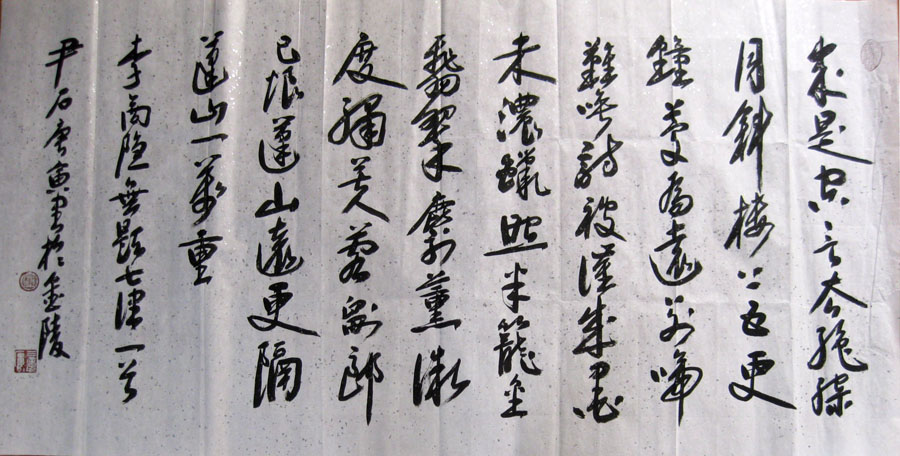 來是空言去絕蹤
月斜樓上五更
鐘夢為遠別啼
難喚詩被催成墨
未濃蠟照半籠金
翡翠麝薰微
度繡芙蓉劉郎
已恨蓬山遠更隔
蓬山一萬重
李商隱無題七律一首
尹石庚寅書於金陵